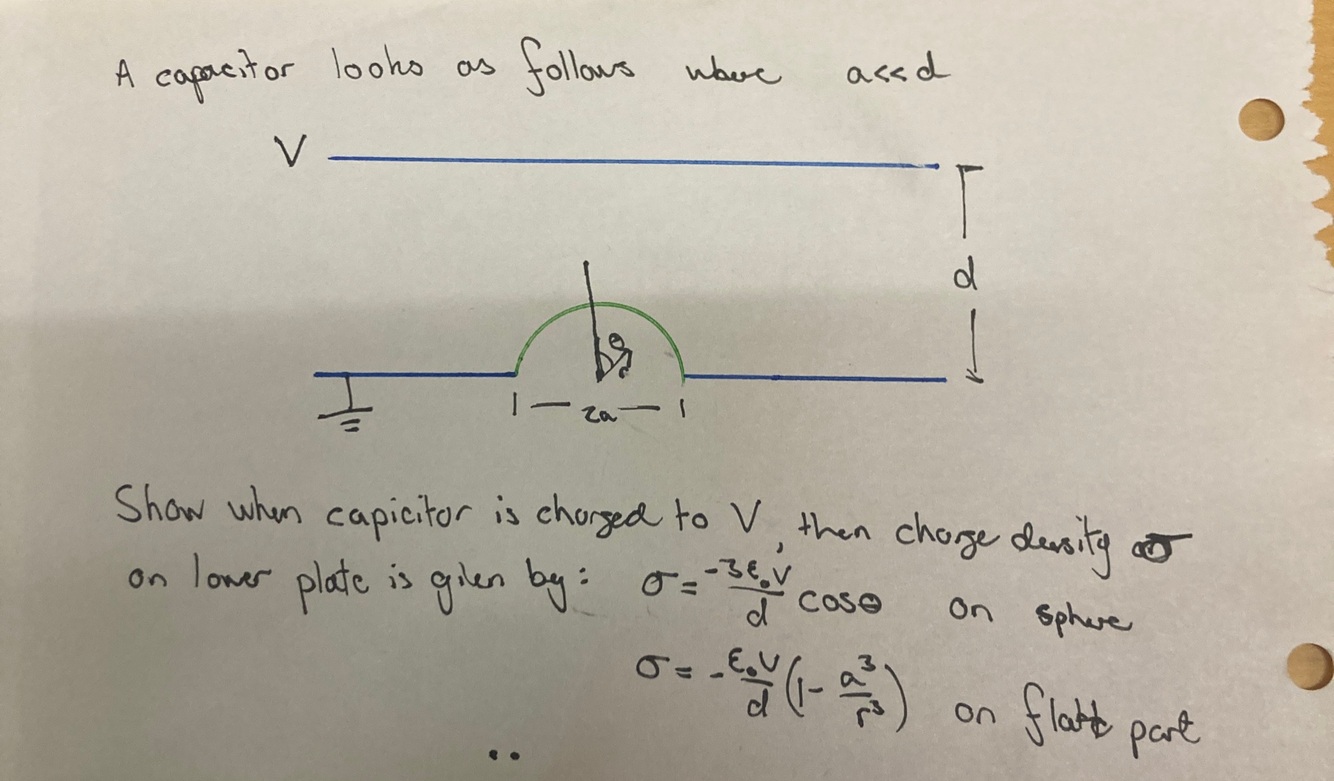 A capacitor looks as follows where a<<d
V
d
θ
r
2a
Show when capicitor is charged to V, then charge density σ
on lower plate is given by: σ = -3ε₀V/d cosθ on sphere
σ = -ε₀V/d (1 - a³/r³) on flat part